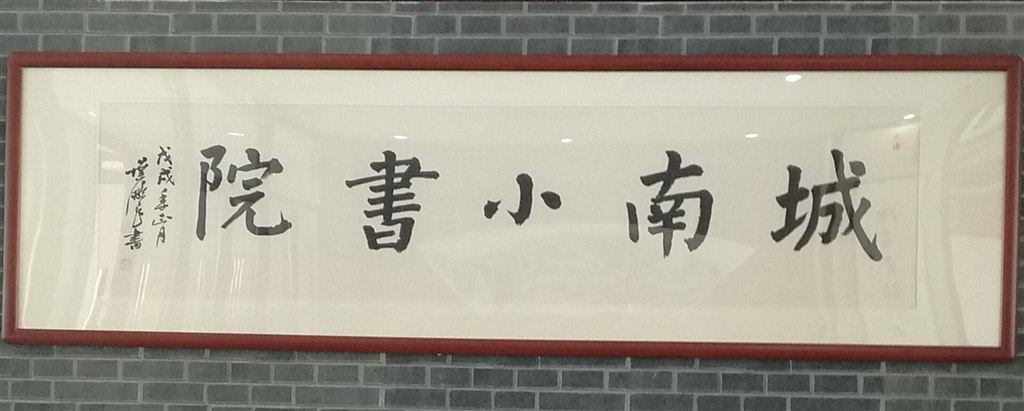 城南小書院
戊戌年正月
書